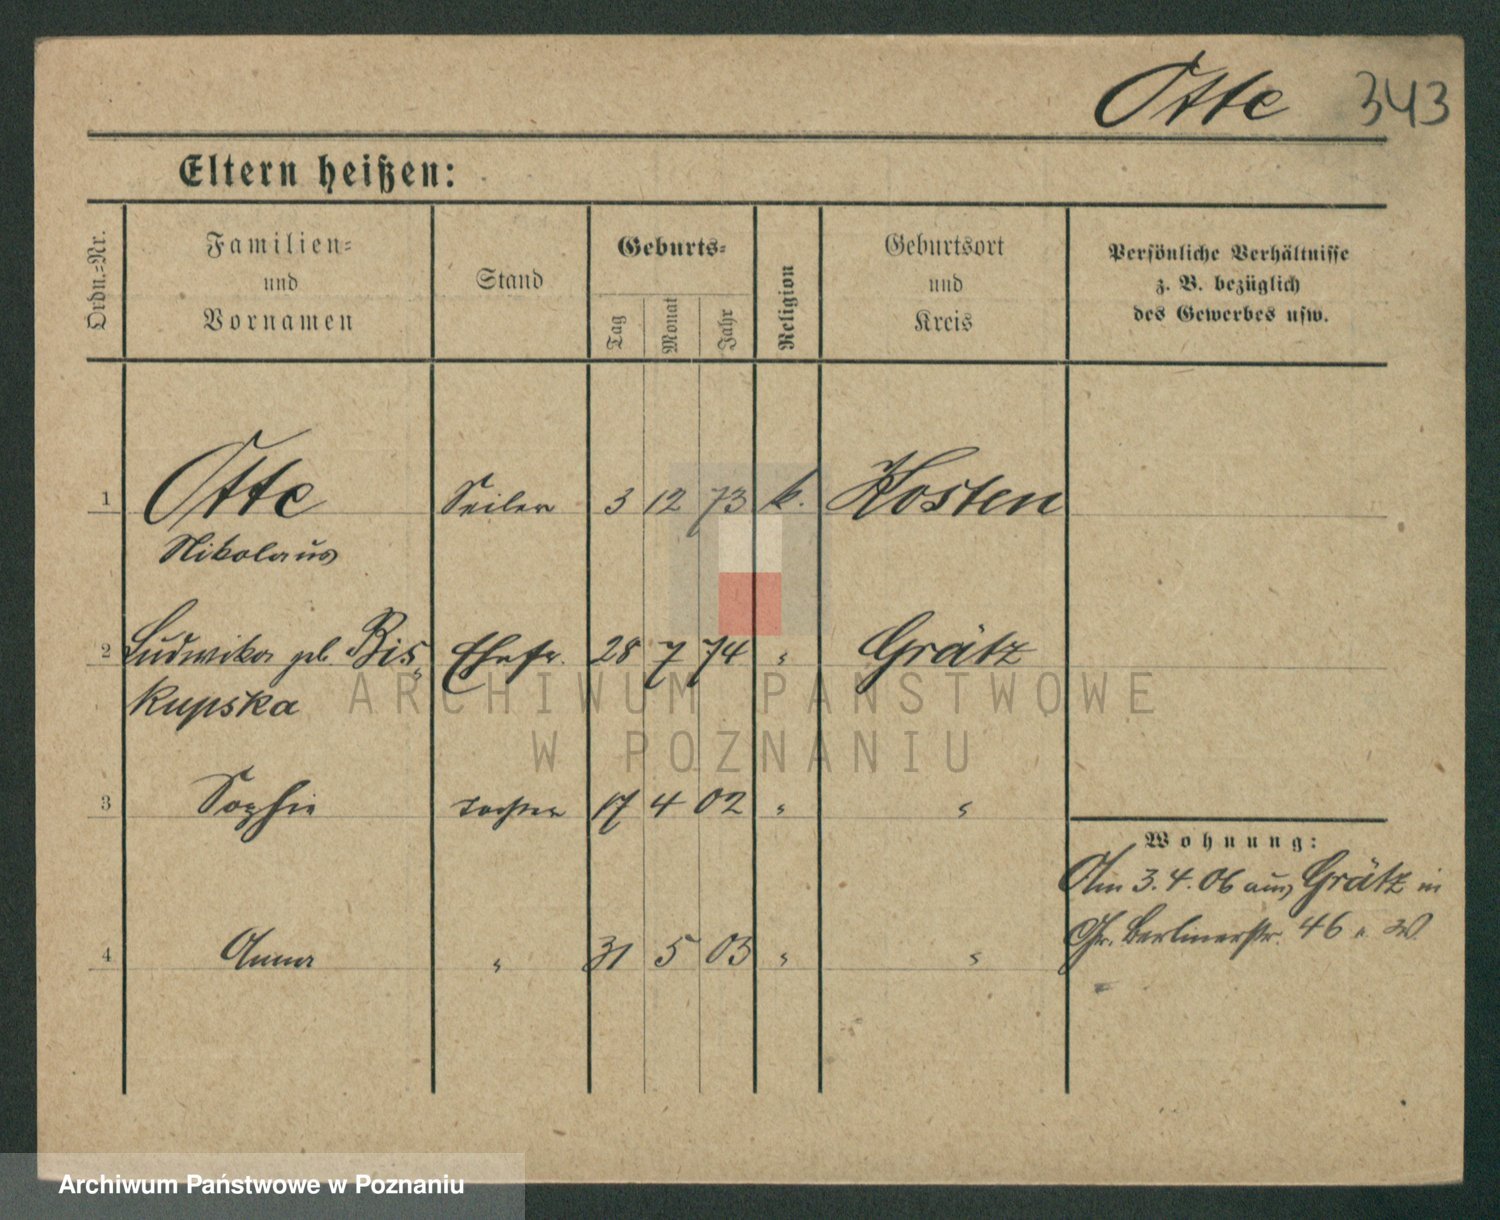 Otte 343
Eltern heißen:
Ordn.=Nr.
Familien=
und
Vornamen
Stand
Geburts=
Tag
Monat
Jahr
Religion
Geburtsort
und
Kreis
Persönliche Verhältnisse
z. B. bezüglich
des Gewerbes usw.
1 Otte Seiler 3 12 73 k. Kosten
Nikolaus
2 Ludwika geb. Bis„ Ehefr. 28 7 74 " Grätz
kupska
ARCHIWUM PAŃSTWOWE
W POZNANIU
3 Sophie Tochter 17 4 02 " "
Wohnung:
Am 3.4.06 aus Grätz in
Gr. Berlinerstr. 46 b. W.
4 Anna " 31 5 03 " "
Archiwum Państwowe w Poznaniu